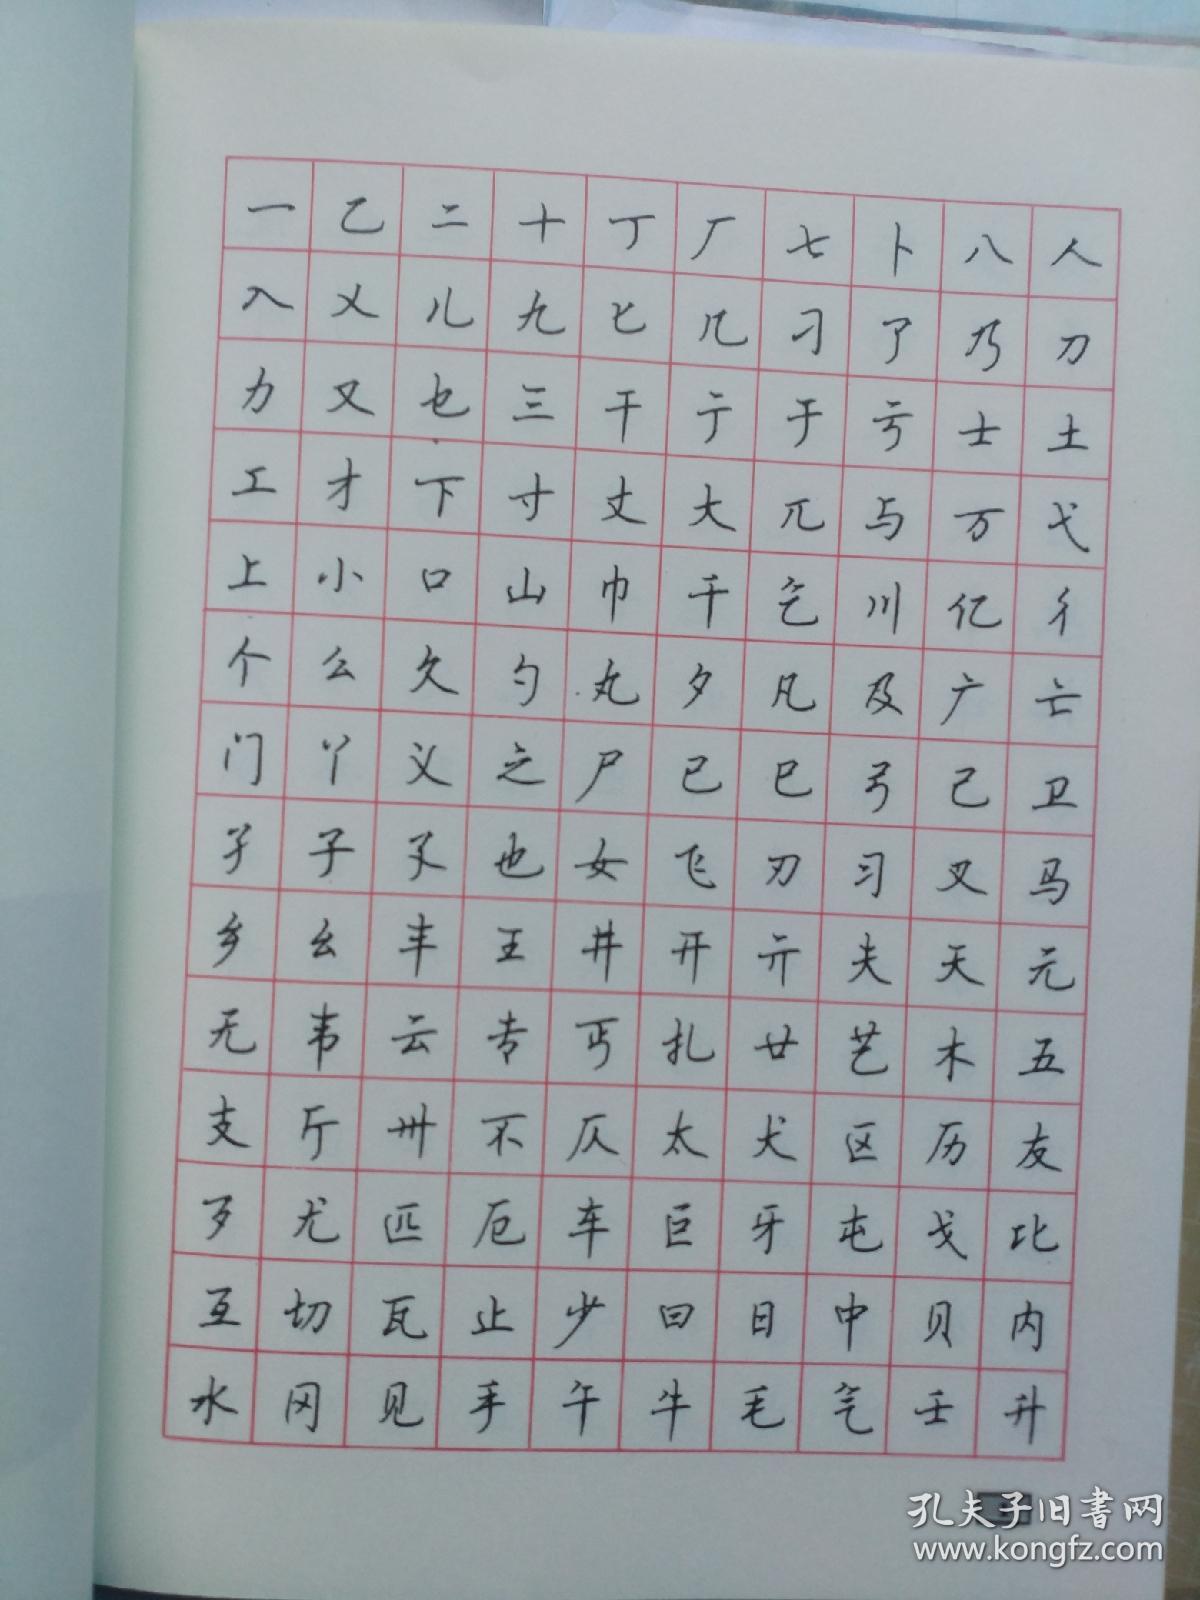 一乙二十丁厂七卜八人
入乂儿九匕几刁了乃刀
力又乜三干亍于亏士土
工才下寸丈大兀与万弋
上小口山巾千乞川亿彳
个么久勺丸夕凡及广亡
门丫义之尸已巳弓己卫
孑子孓也女飞刃习叉马
乡幺丰王井开亓夫天元
无韦云专丐扎廿艺木五
支厅卅不仄太犬区历友
歹尤匹厄车巨牙屯戈比
互切瓦止少曰日中贝内
水冈见手午牛毛气壬升
孔夫子旧书网
www.kongfz.com